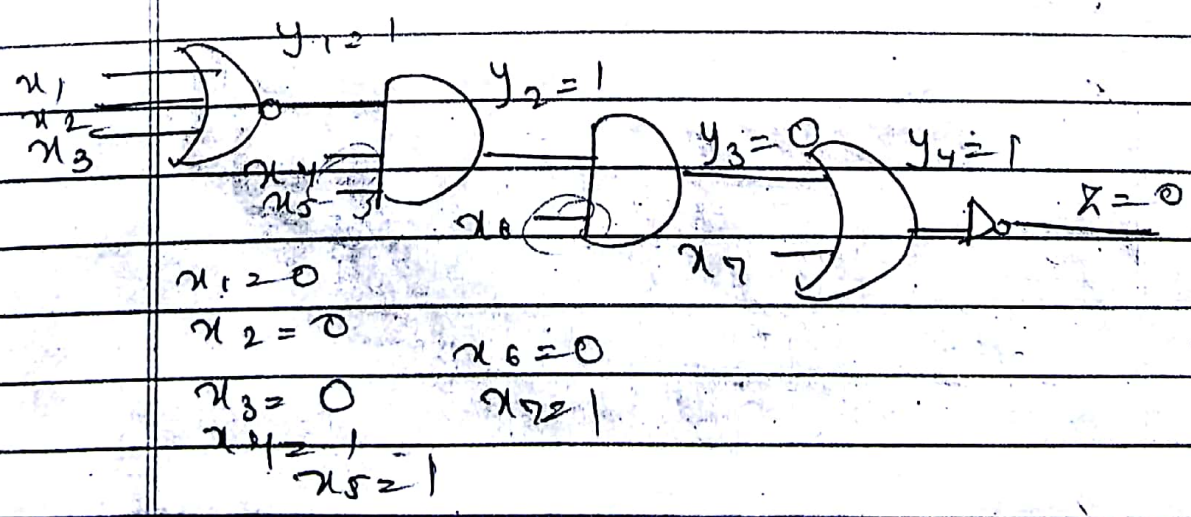 y1 = 1
x1
x2
x3
y2 = 1
x4
x5
y3 = 0
y4 = 1
x6
x7
Z = 0
x1 = 0
x2 = 0
x3 = 0
x4 = 1
x5 = 1
x6 = 0
x7 = 1